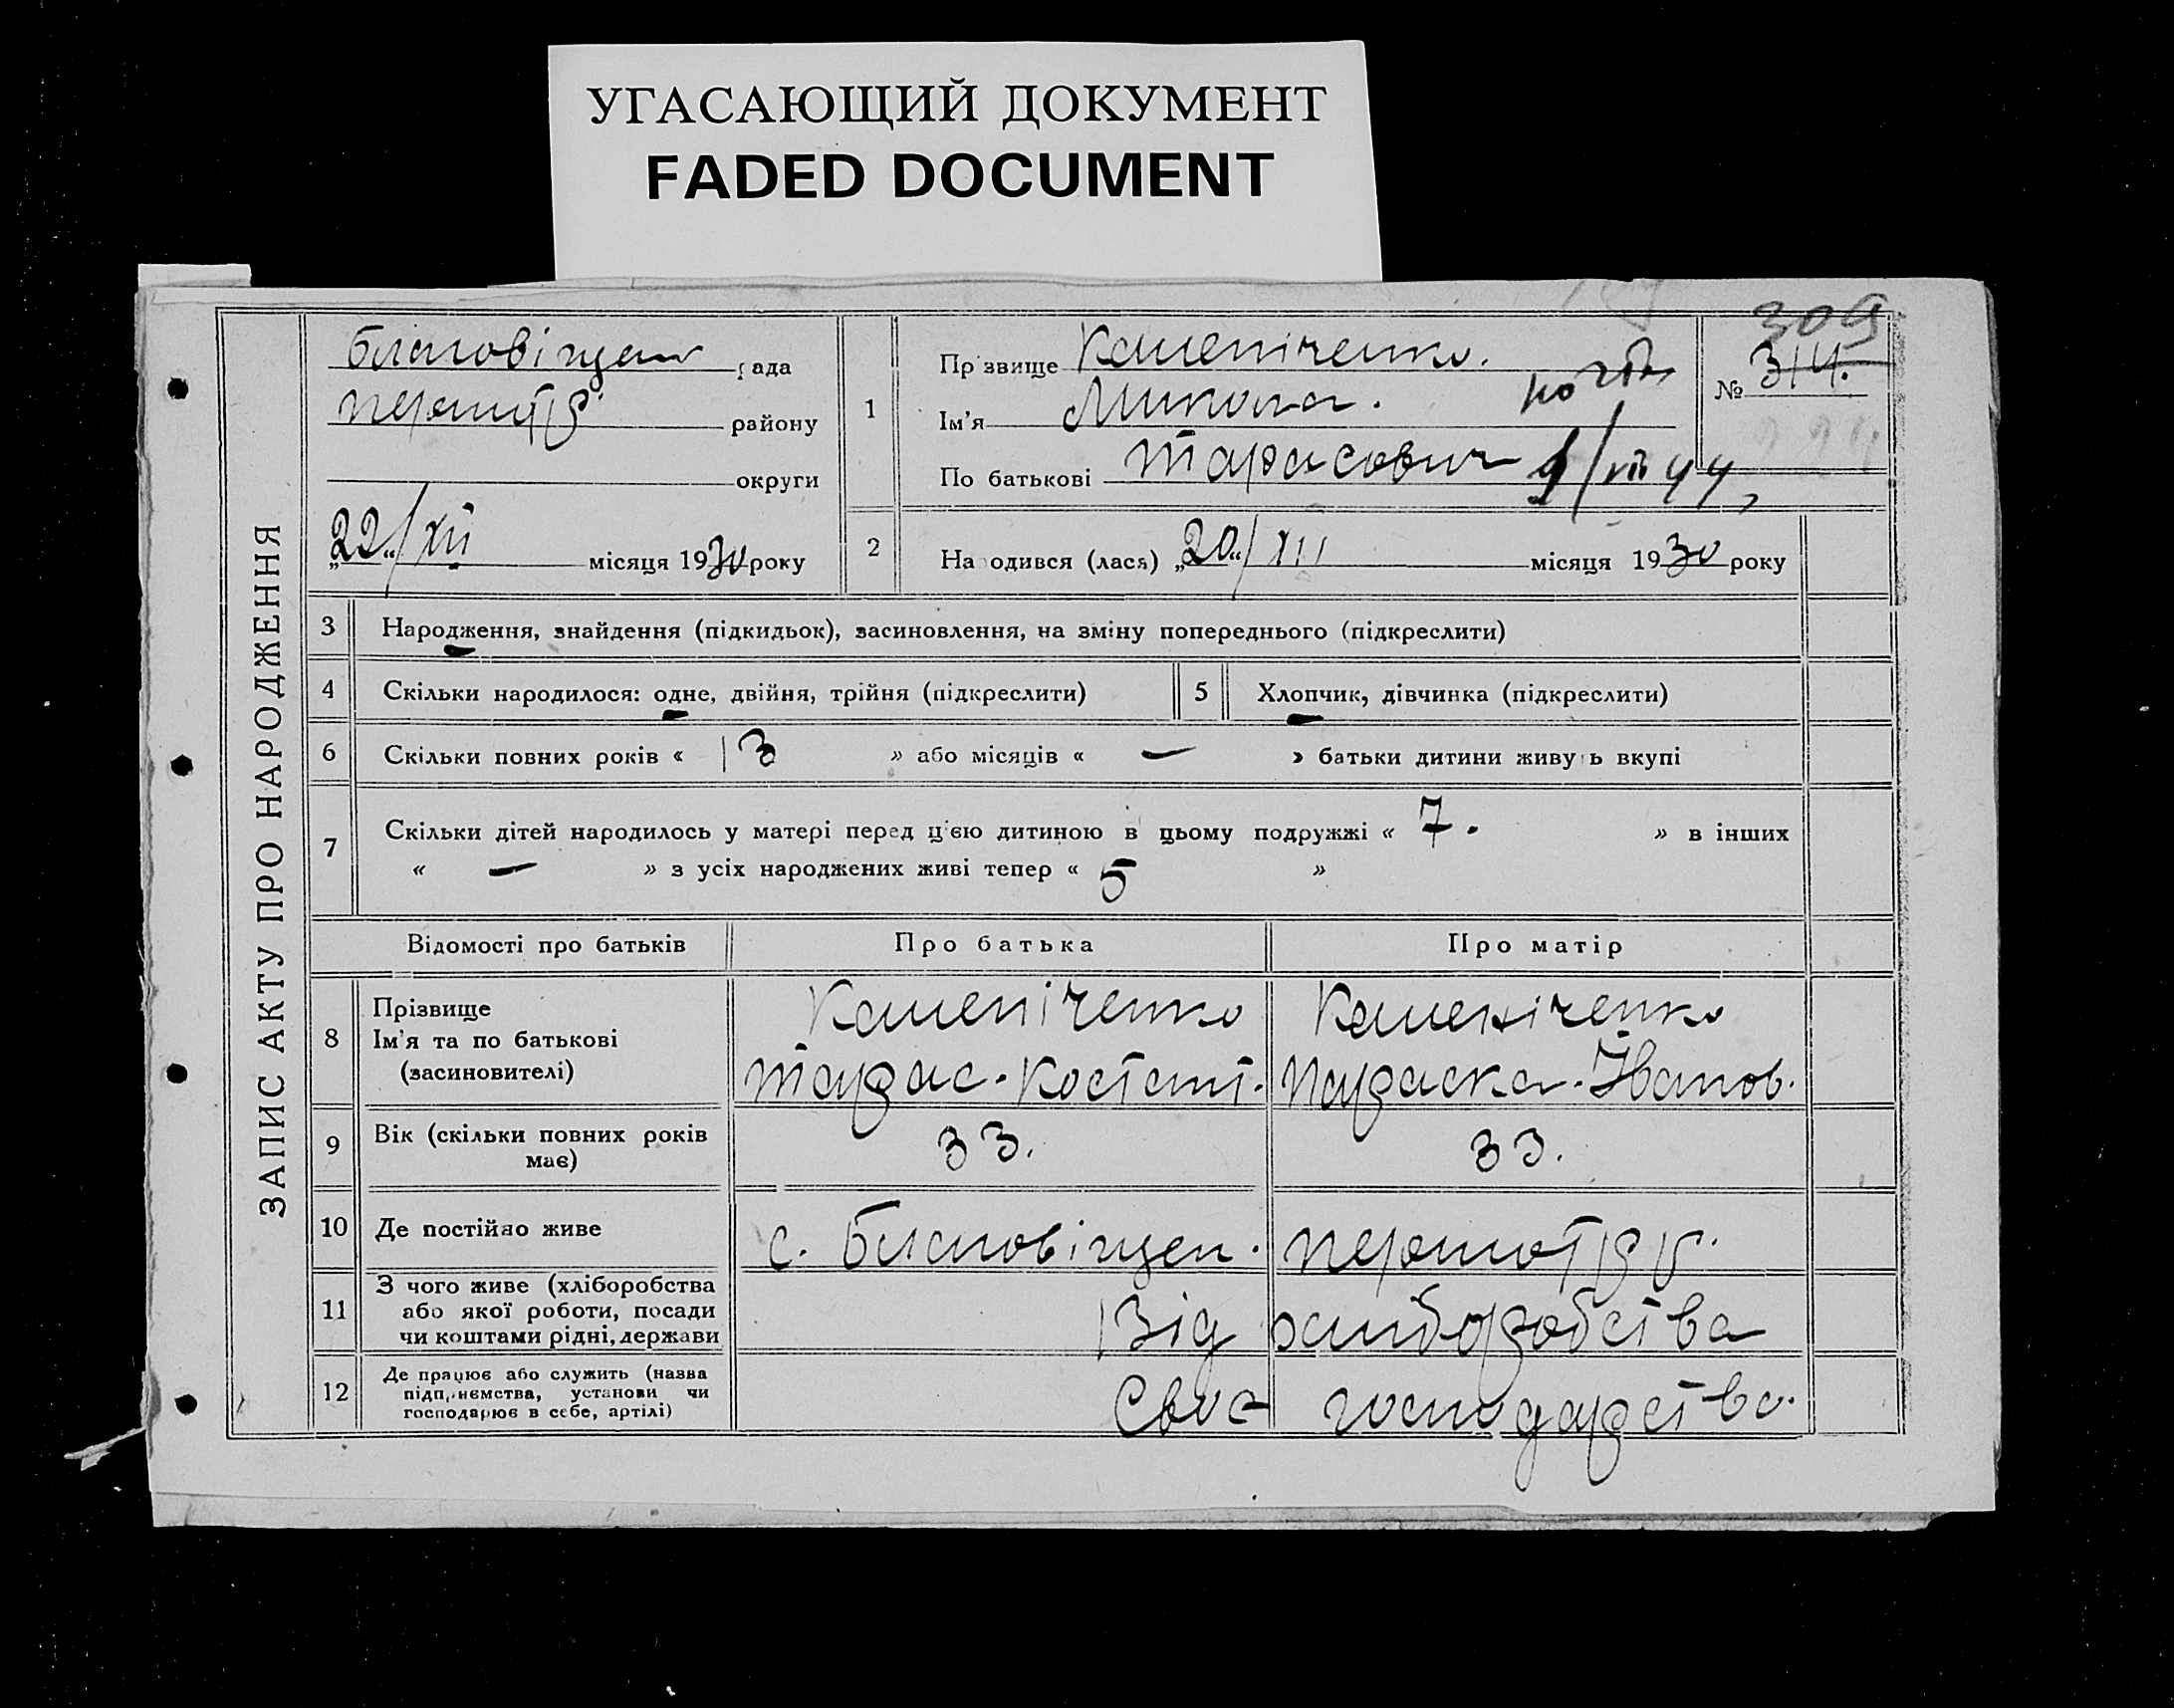 УГАСАЮЩИЙ ДОКУМЕНТ
FADED DOCUMENT
ЗАПИС АКТУ ПРО НАРОДЖЕННЯ
Благовіщен рада
району
округи
„22“/XII місяця 1930 року
1
Прізвище Каменіченко.
Ім'я Микола.
По батькові Тарасович
309
№ 314.
2
Народився (лася) „20“/XII місяця 1930 року
3 Народження, знайдення (підкидьок), засиновлення, на зміну попереднього (підкреслити)
4 Скільки народилося: одне, двійня, трійня (підкреслити)
5 Хлопчик, дівчинка (підкреслити)
6 Скільки повних років « 13 » або місяців « — » батьки дитини живуть вкупі
7 Скільки дітей народилось у матері перед цією дитиною в цьому подружжі « 7. » в інших
« — » з усіх народжених живі тепер « 5 »
Відомості про батьків Про батька Про матір
8 Прізвище
Ім'я та по батькові
(засиновителі)
Каменіченко
Тарас. Костянт.
Каменіченко
Параска. Іванов.
9 Вік (скільки повних років
має)
33.
33.
10 Де постійно живе
с. Благовіщен.
11 З чого живе (хліборобства
або якої роботи, посади
чи коштами рідні, держави
Від хліборобства
12 Де працює або служить (назва
підприємства, установи чи
господарює в себе, артілі)
Своє господарство.